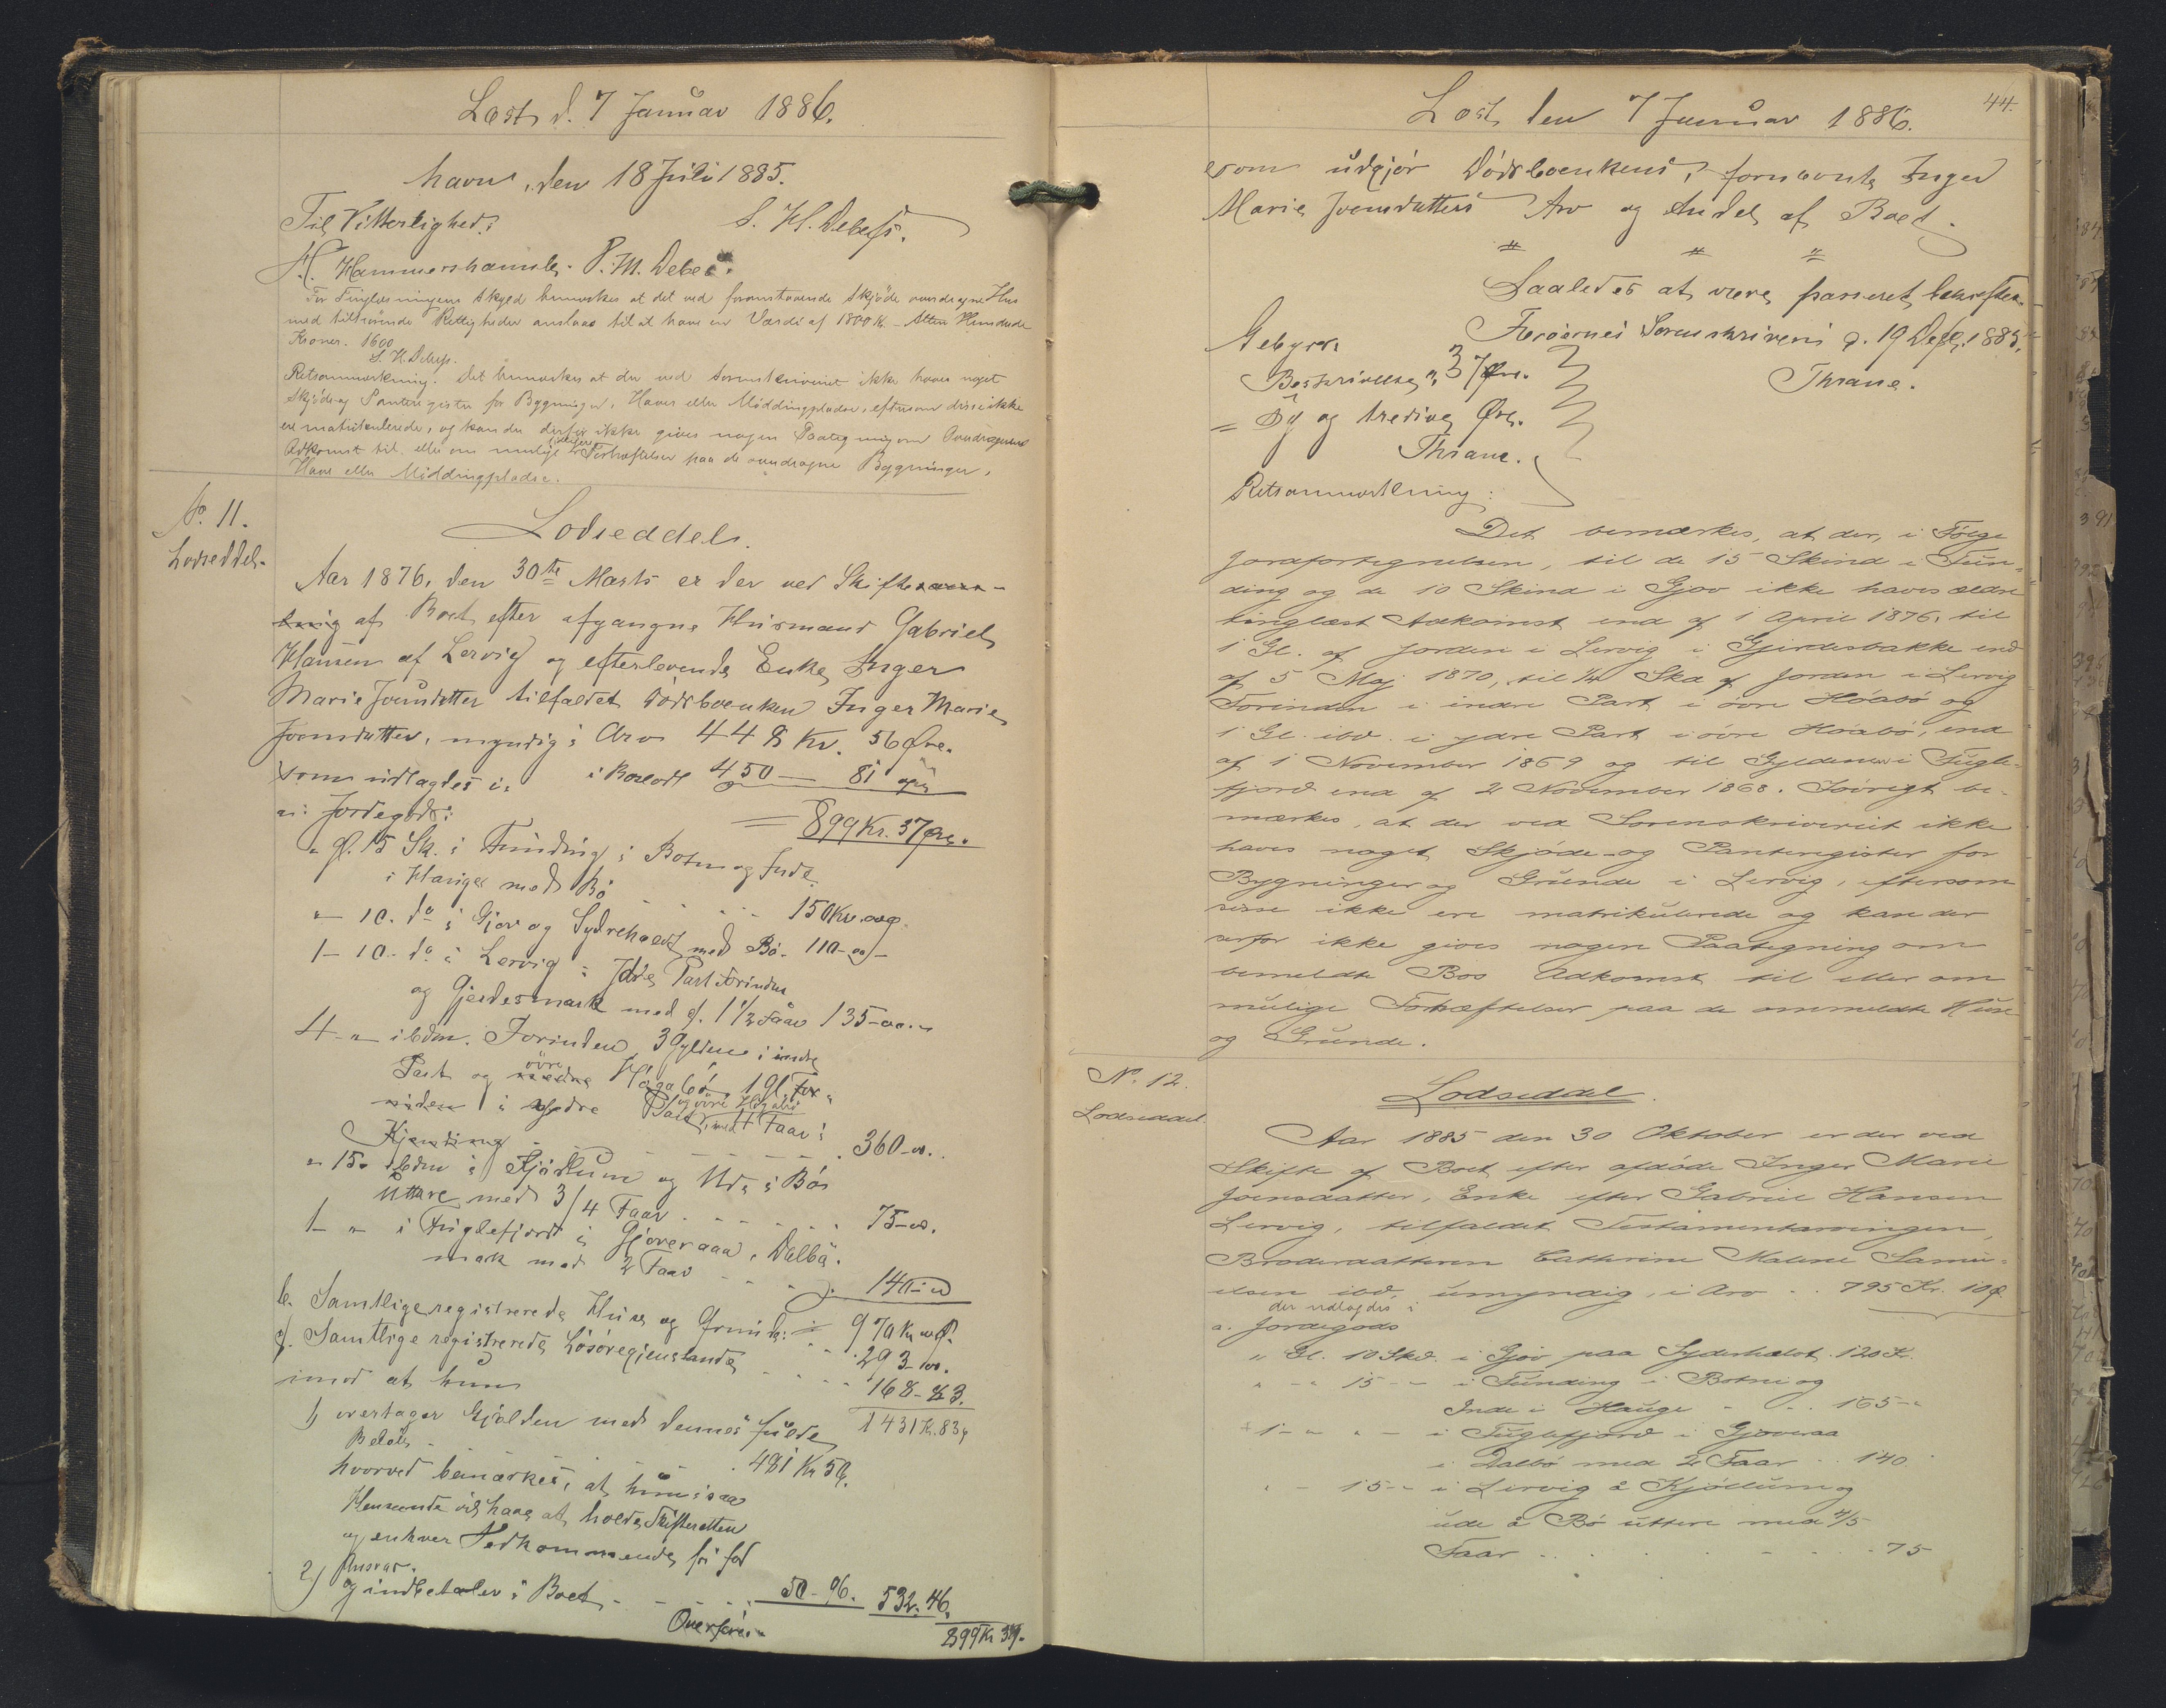 Læst d. 7 Januar 1886.
havn, den 18 Juli 1885.
Til Vitterlighed:
S. H. Debess.
H. Hammershaimb. P. M. Debes.
For Tinglæsningens Skyld bemærkes at det ved foranstaaende Skjøde overdragne Hus
med tilhørende Rettigheder ansloaes til at have en Værdi af 1800 Kr. - Atten Hundrede
Kroner. 1600
S. H. Debess.
Retsanmærkning. Det bemærkes at der ved Sorenskriveriet ikke haves noget
Skjøde og Panteregister for Bygninger, Haver eller Møddingpladse, eftersom disse ikke
ere matrikulerede, og kan der derfor ikke gives nogen Paategning om Overdragerens
Adkomst til eller om mulige tidligere Forhæftelser paa de overdragne Bygninger,
Have eller Møddingpladse.
No. 11.
Lodseddel.
Lodseddel.
Aar 1876, den 30te Marts er der ved Skifte
af Boet efter afgangne Husmand Gabriel
Hansen af Lervig og efterlevende Enke Inger
Marie Joensdatter tilfaldet Dødsboenken Inger Marie
Joensdatter, myndig i Arv 448 Kr. 56 Øre.
som udlagdes i: i Boslod 450 — 81
= 899 Kr. 37 Øre.
a: Jordegods:
" gl. 15 Sk. i Funding i Botne og Inde
i Hauge med Bø - - - - 150 Kr. 00 Ø.
" - 10. do i Gjov og Sydrehaldt med Bø. 110-00 -
1 - 10. do i Lervig i Jdre Part Forinden
og Gjerdesmark med gl. 1 1/2 Faar 135-00.
4 - " ibdm. Forinden 3 Gylden i indre
Part og øvre Høgabø, 1 Gl. For-
inden i ydre Part i øvre Høgabø, med 4 Faar i
Kjending - - - - - - - 360-00.
" 15 - ibdm i Kjøllum og Ude i Bø
Uttare med 3/4 Faar - - - - - - 75-00.
1 - " i Fuglefjord i Gjoveraa, Dalbø-
mark med 2 Faar - - - 140-00
970 Kr. 00 Ø.
b. Samtlige registrerede Huse og Grunde: - - 293-00.
c. Samtlige registrerede Løsøregjenstande - - - 168-83.
1431 Kr. 83 Ø
imod at hun
1) overtager Gjælden med dennes fulde
Beløb - - - - . 481 Kr 50.
hvorved bemærkes, at hun i saa
Henseende vil have at holde Skifteretten
og enhver Vedkommende fri for
Ansvar.
2) og indbetaler i Boet - - - - - 50-96. 532.46.
Overføres 899 Kr 37 Ø.
44.
Læst den 7 Januar 1886.
som udgjør Dødsboenkens, fornævnte Inger
Marie Joensdatters Arv og Andel af Boet.
" " "
Saaledes at være passeret bekræftes.
Færøernes Sorenskriveri d. 19 Decbr. 1885.
Gebyr:
Beskrivelse " 37 Øre.
Thrane.
= Syv og tredive Øre.
Thrane.
Retsanmærkning:
Det bemærkes, at der, i Følge
Jordafortegnelsen, til de 15 Skind i Fun-
ding og de 10 Skind i Gjov ikke haves ældre
tinglæst Adkomst end af 1 April 1876, til
1 Gl. af Jorden i Lervig i Gjirdesbakke end
af 5 Maj 1870, til 1/4 Skd af Jorden i Lervig
Forinden i indre Part i øvre Høabø og
1 Gl. ibd. i ydre Part i øvre Høabø, end
af 1 November 1869 og til Gyldenen i Fugle-
fjord end af 2 November 1868. Iøvrigt be-
mærkes, at der ved Sorenskriveriet ikke
haves noget Skjøde- og Panteregister for
Bygninger og Grunde i Lervig, eftersom
disse ikke ere matrikulerede og kan der
derfor ikke gives nogen Paategning om
bemeldte Bos Adkomst til eller om
mulige Forhæftelser paa de ommeldte Huse
og Grunde.
No. 12.
Lodseddel.
Lodseddel.
Aar 1885 den 30 Oktober er der ved
Skifte af Boet efter afdøde Inger Marie
Joensdatter, Enke efter Gabriel Hansen
Lervig, tilfaldet Testamentarvingen,
Broderdatteren Cathrine Malene Samu-
elsen ibd. umyndig, i Arv . . 795 Kr. 10 Ø.
der udlagdes i
a. Jordegods
" Gl. 10 Skd. i Gjov paa Syderhaldet. 120 K.
" - " 15 - - i Funding i Botni og
Inde i Hauge - . . 165 - "
+ 1 - " " - i Fuglefjord i Gjoveraa
i Dalbø med 2 Faar . . 140.
" - 15 - - i Lervig á Kjøllum og
ude á Bø uttare med 4/5
Faar . . . . - - - 75